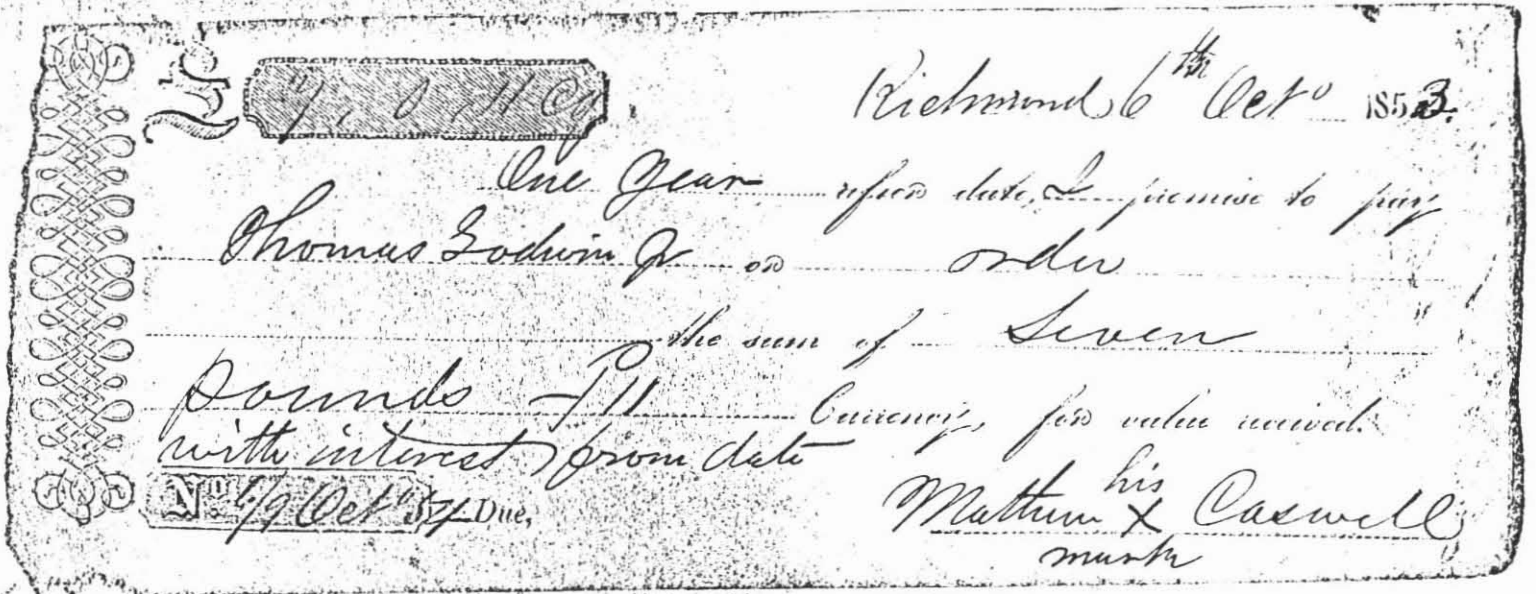 £ 7, 0 11 Cy. Richmond 6th Octo 1853.
One Year after date, I promise to pay
Thomas Godwin Jr or order
the sum of Seven
pounds Currency, for value received.
with interest from date
No. 6/9 Octo 54 Due, his
Mathew X Caswell
mark